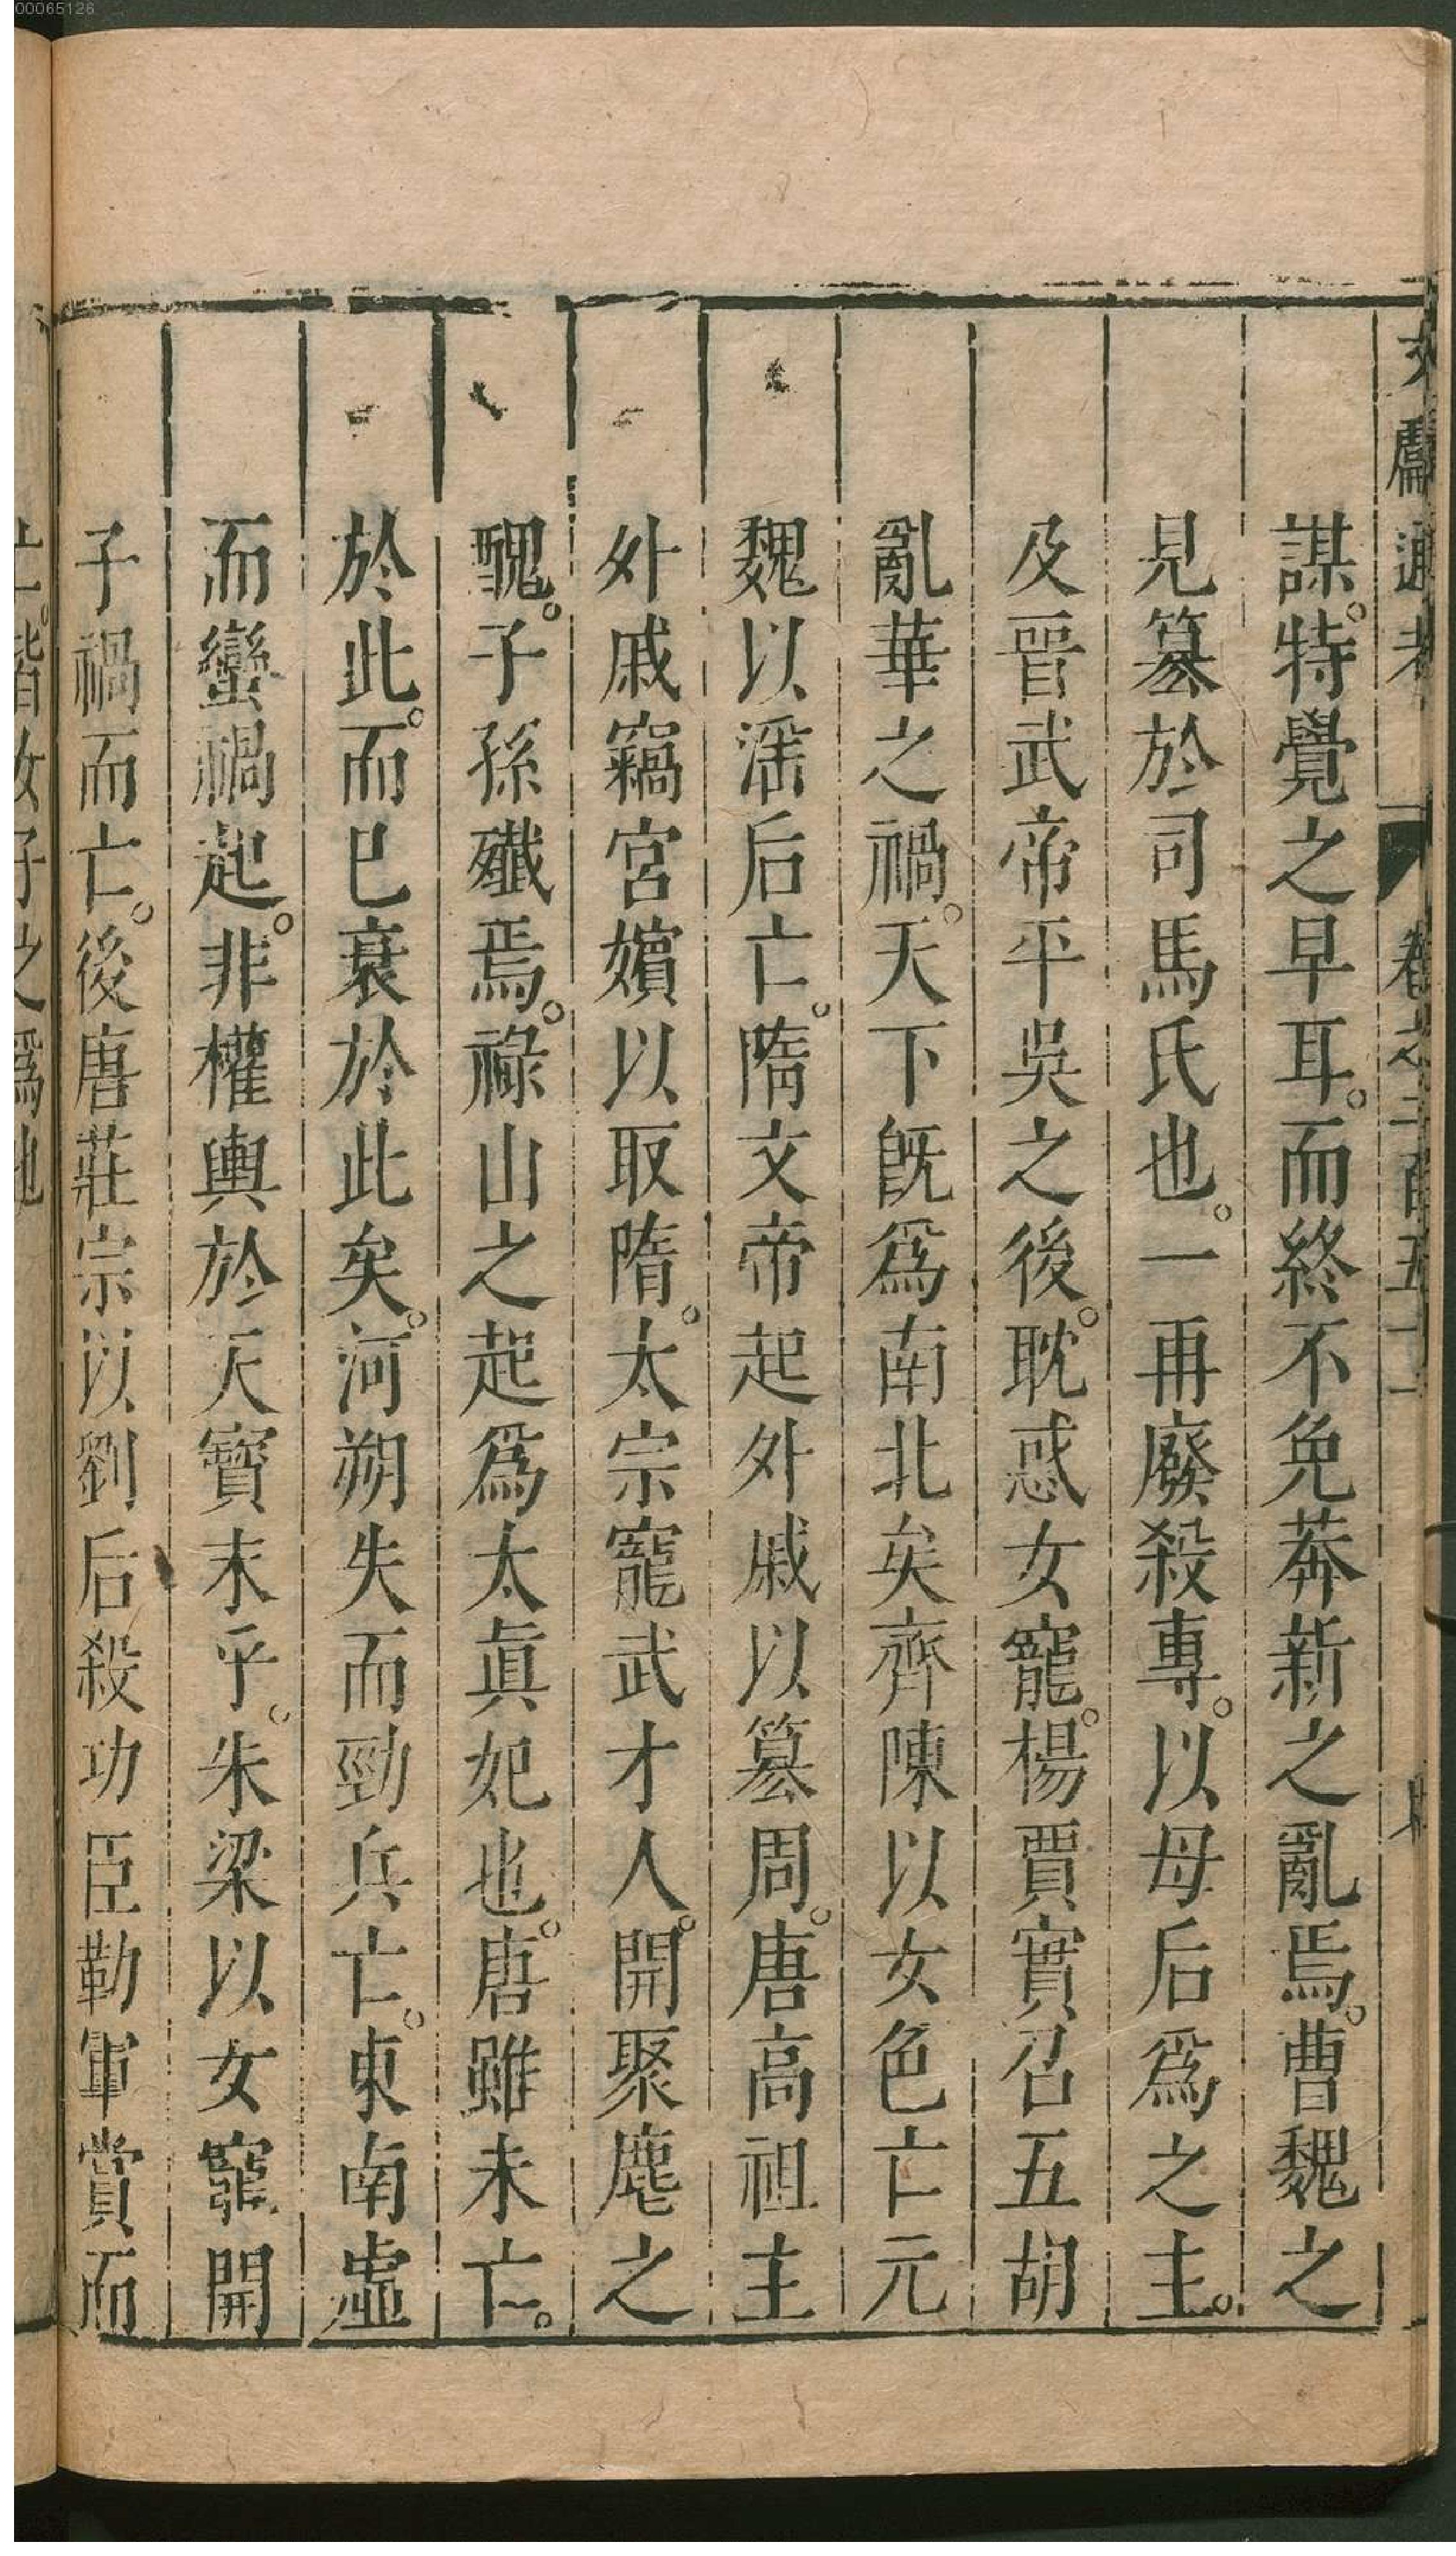 00065126
文獻通考 卷之二百五十一
謀。特覺之早耳。而終不免莽新之亂焉。曹魏之
見篡於司馬氏也。一再廢殺專。以母后爲之主。
及晉武帝平吳之後。耽惑女寵。楊賈實召五胡
亂華之禍。天下旣爲南北矣齊陳以女色亡元
魏以滛后亡。隋文帝起外戚以篡周。唐高祖主
外戚竊宮嬪以取隋。太宗寵武才人。開聚麀之
醜。子孫殲焉。祿山之起爲太眞妃也。唐雖未亡。
於此。而已衰於此矣。河朔失而勁兵亡。東南虛
而蠻禍起。非權輿於天寶末乎。朱梁以女寵開
子禍而亡。後唐莊宗以劉后殺功臣勒軍賞而